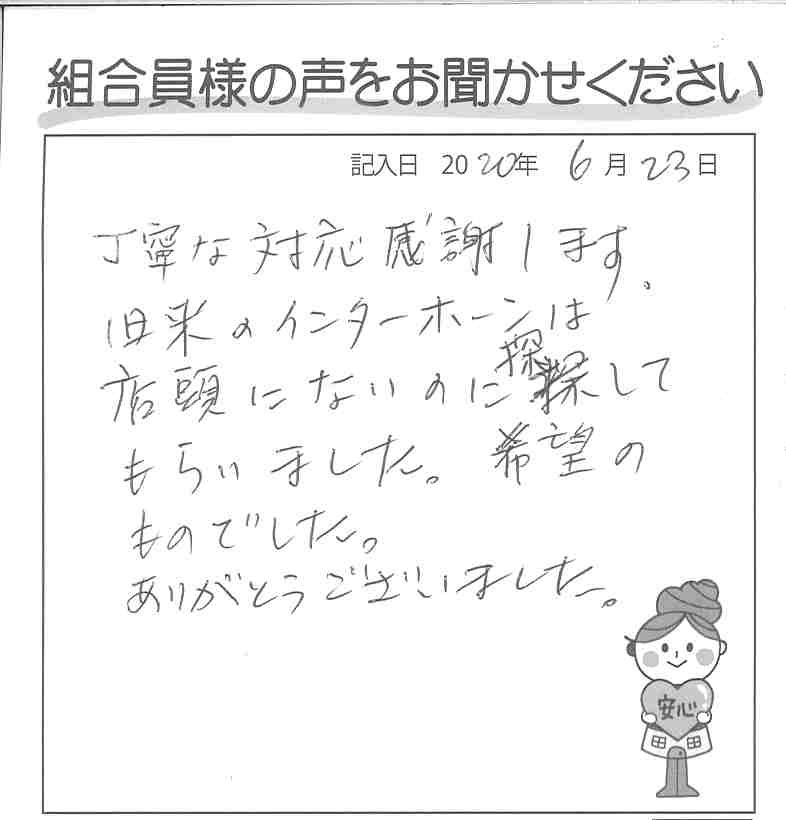 組合員様の声をお聞かせください
記入日 2020年 6月23日
丁寧な対応感謝します。
旧来のインターホーンは
店頭にないのに探して
もらいました。希望の
ものでした。
ありがとうございました。
安心